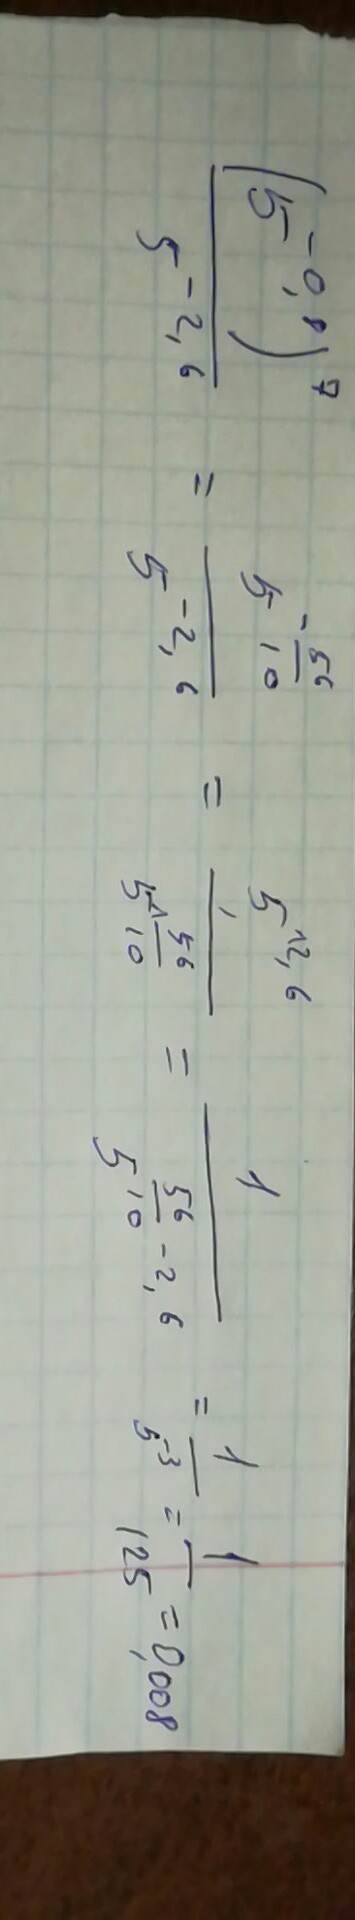 (5^{-0,8})^7 / 5^{-2,6} = 5^{-56/10} / 5^{-2,6} = 5^{2,6} / 5^{56/10} = 1 / 5^{56/10 - 2,6} = 1 / 5^3 = 1 / 125 = 0,008